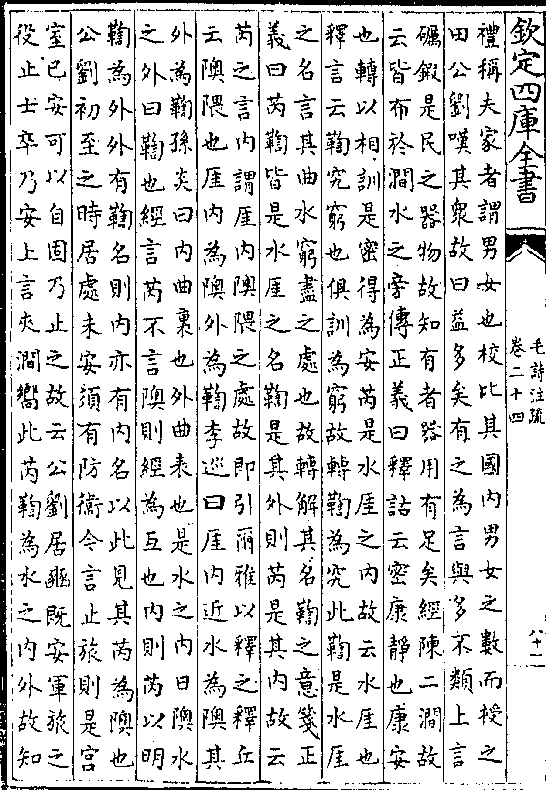 欽定四庫全書
毛詩注疏
卷二十四
八十一
禮稱夫家者謂男女也校比其國內男女之數而授之
田公劉嘆其衆故曰益多矣有之為言與多不類上言
礪鍛是民之器物故知有者器用有足矣經陳二澗故
云皆布於澗水之旁傳正義曰釋詁云密康靜也康安
也轉以相訓是密得為安芮是水厓之內故云水厓也
釋言云鞫究窮也俱訓為窮故轉鞫為究此鞫是水厓
之名言其曲水窮盡之處也故轉解其名鞫之意箋正
義曰芮鞫皆是水厓之名鞫是其外則芮是其內故云
芮之言內謂厓內隩隈之處故即引爾雅以釋之釋丘
云隩隈也厓內為隩外為鞫李巡曰厓內近水為隩其
外為鞫孫炎曰內曲裏也外曲表也是水之內曰隩水
之外曰鞫也經言芮不言隩則經為互也內則芮以明
鞫為外外有鞫名則內亦有內名以此見其芮為隩也
公劉初至之時居處未安須有防衛今言止旅則是宮
室已安可以自固乃止之故云公劉居豳既安軍旅之
役止士卒乃安上言夾澗嚮此芮鞫為水之內外故知